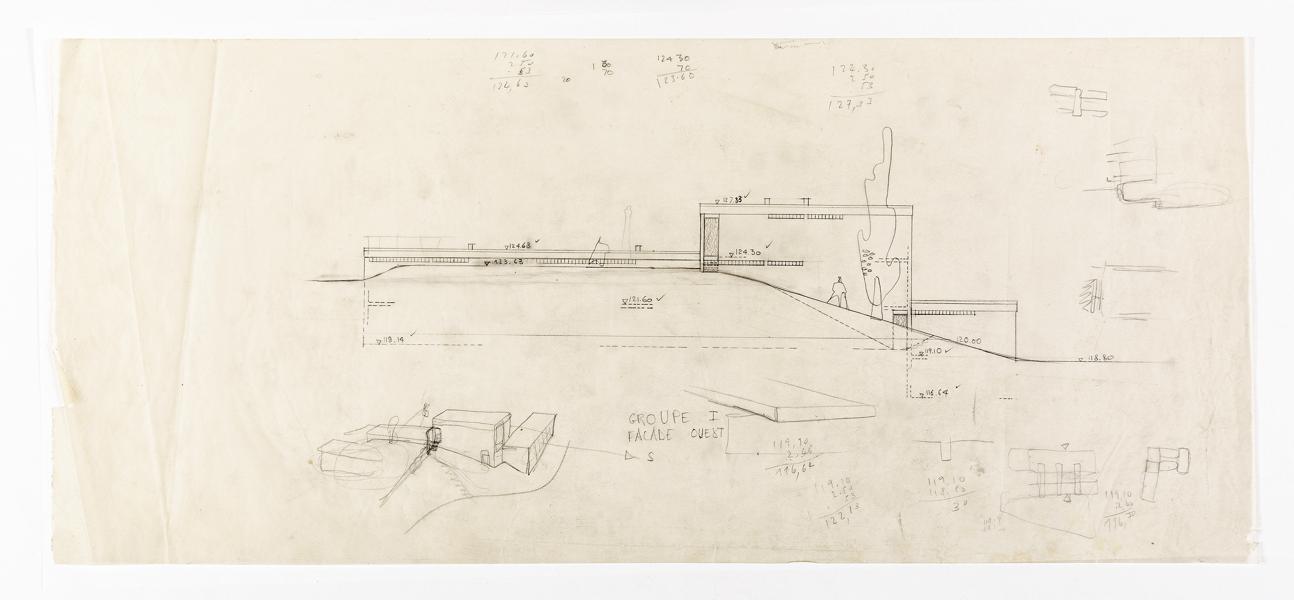 121.60
2 50
53
124,63
20
1 30
70
124 30
70
123.60
122.30
2 50
53
127,33
127.33
124.63
123.63
124.30
121.60
118.14
119.10
120.00
118.80
116.64
GROUPE I
FACADE OUEST
S
119,10
116,62
119.10
2.50
53
122,13
119 10
30
119,10